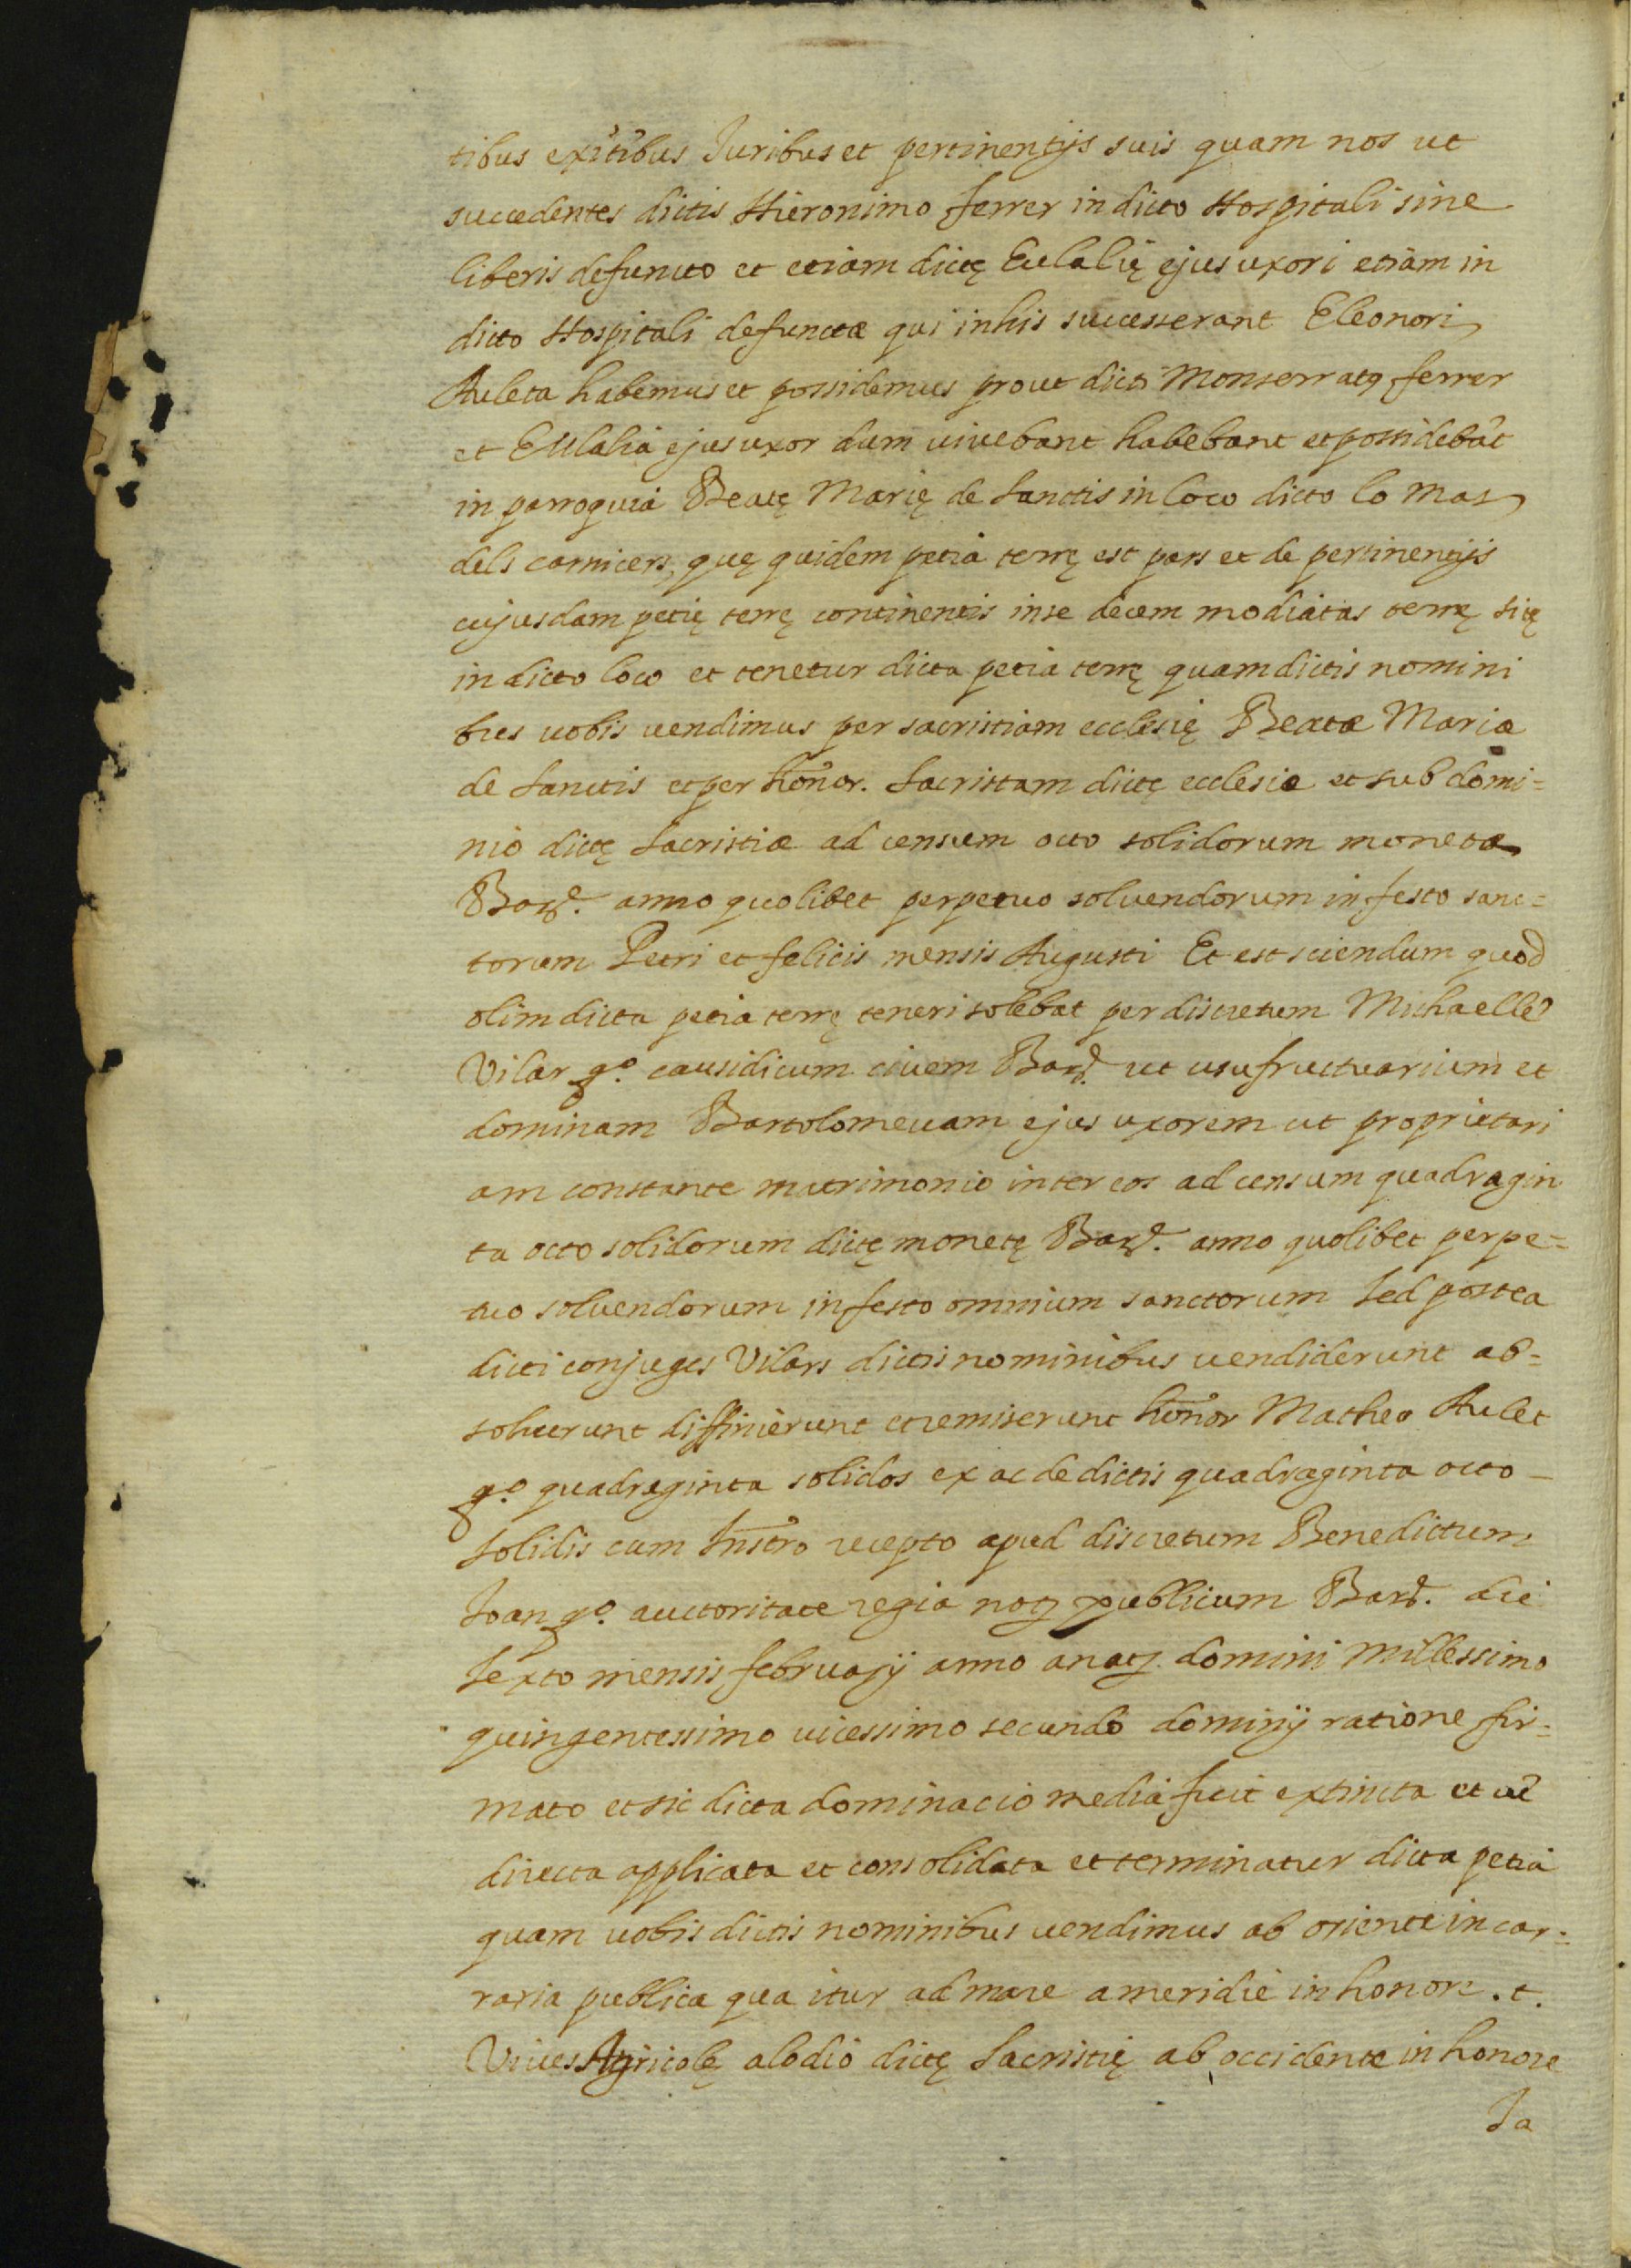 tibus exitibus Juribus et pertinentijs suis quam nos ut
succedentes dictis Hieronimo ferrer in dicto Hospitali sine
liberis defuncto et etiam dictę Eulalię ejus uxori etiam in
dicto Hospitali defunctæ qui in his successerant Eleonori
Auleta habemus et possidemus prout dicti Monserratꝫ ferrer
et Eulalia ejus uxor dum vivebant habebant et possidebāt
in parroquia Beatę Marię de Sanctis in loco dicto lo mas
dels carnicers, quę quidem petia terrę est pars et de pertinentijs
cujusdam petię terrę continentis in se decem modiatas terrę sitę
in dicto loco et tenetur dicta petia terrę quam dictis nomini
bus vobis vendimus per sacristiam ecclesię Beatæ Mariæ
de Sanctis et per honor. Sacristam dictę ecclesiæ et sub domi=
nio dictę Sacristiæ ad censum octo solidorum monetæ
Barꝫᵉ. anno quolibet perpetuo solvendorum in festo sanc=
torum Petri et felicis mensis Augusti Et est sciendum quod
olim dicta petia terrę teneri solebat per discretum Michaellē
Vilar qº. causidicum civem Barꝫᵉ. ut usufructuarium et
dominam Bartolomevam ejus uxorem ut proprietari
am constante matrimonio inter eos ad censum quadragin
ta octo solidorum dictę monetę Barꝫᵉ. anno quolibet perpe=
tuo solvendorum in festo omnium sanctorum Sed postea
dicti conjuges Vilars dictis nominibus vendiderunt ab=
solverunt diffinierunt et remiserunt honōr Matheo Aulet
qº quadraginta solidos ex ac de dictis quadraginta octo
Solidis cum Instrō recepto apud discretum Benedictum
Joan qº. auctoritate regia notꝫ publicum Barꝫᵉ. die
Sexto mensis februarij anno anatꝫ domini Millessimo
quingentessimo vicessimo secundo dominij ratione fir=
mato et sic dicta dominacio media fuit extincta et ad
directa applicata et consolidata et terminatur dicta petia
quam vobis dictis nominibus vendimus ab oriente in car=
raria publica qua itur ad mare a meridie in honore .t.
Vives Agricolę alodio dictę Sacristię ab occidente in honore
Ja